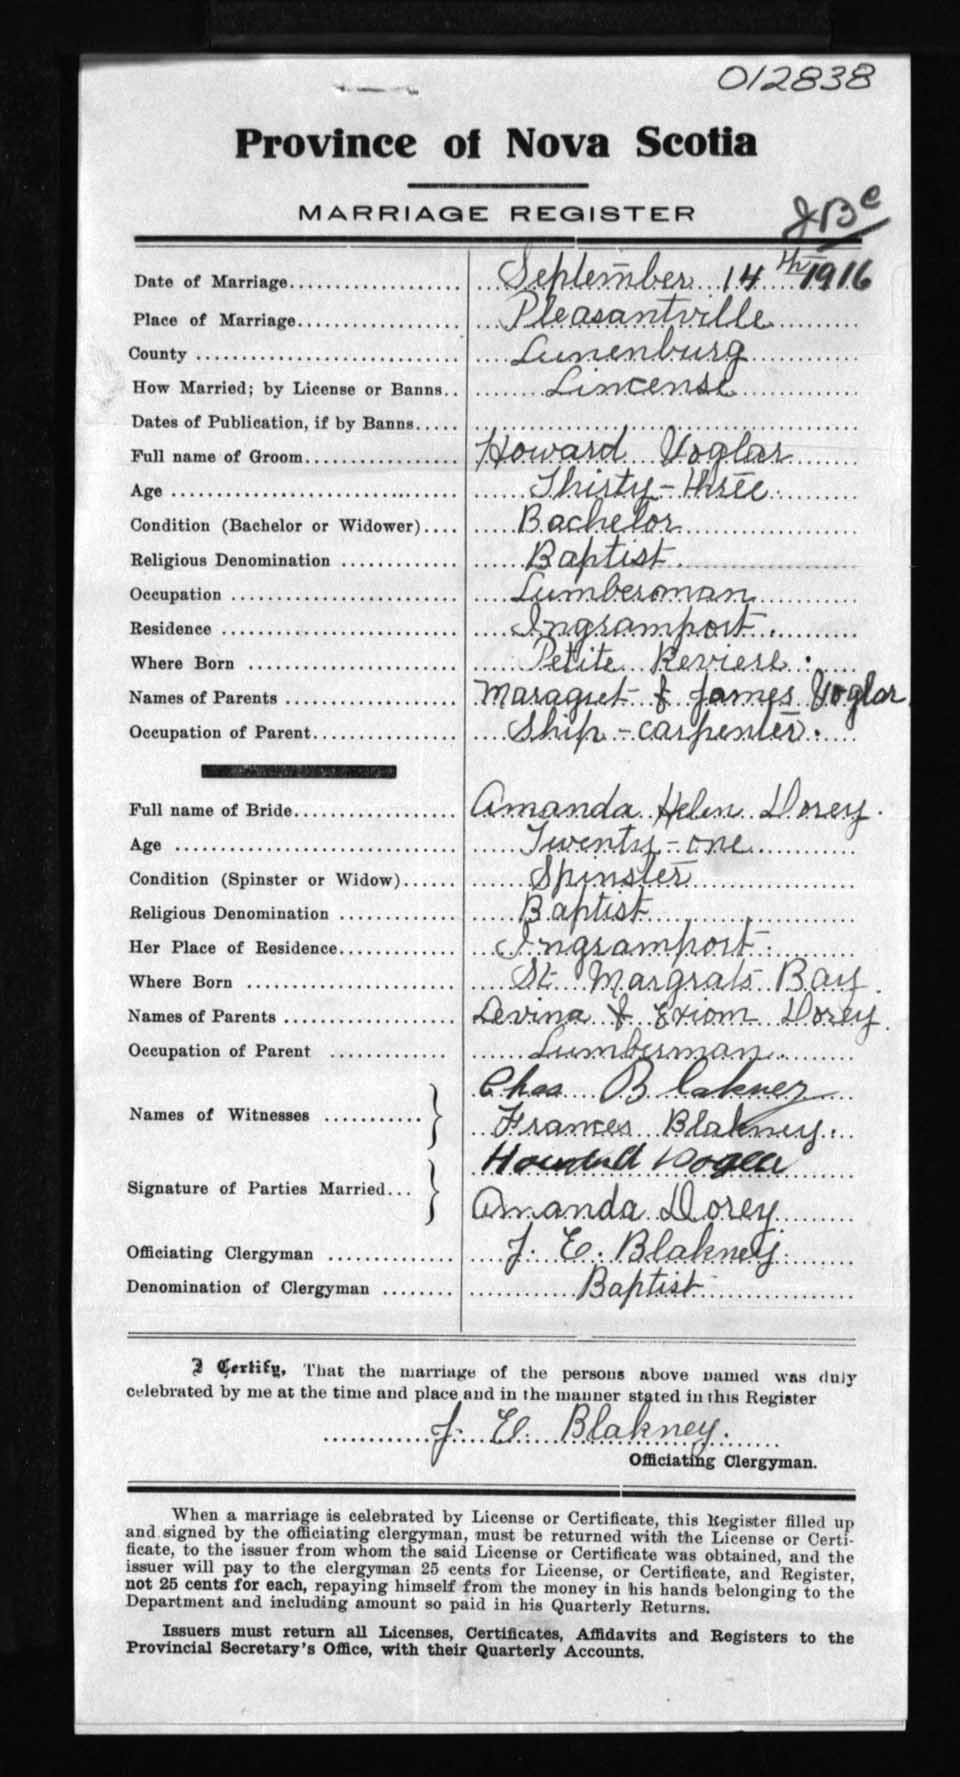 012838
Province of Nova Scotia
MARRIAGE REGISTER
Date of Marriage September 14th 1916
Place of Marriage Pleasantville
County Lunenburg
How Married; by License or Banns Lincense
Dates of Publication, if by Banns
Full name of Groom Howard Voglar
Age Thirty-three
Condition (Bachelor or Widower) Bachelor
Religious Denomination Baptist
Occupation Lumberman
Residence Ingramport.
Where Born Petite Reviere.
Names of Parents Maragret & James Voglar
Occupation of Parent Ship-carpenter.
Full name of Bride Amanda Helen Dorey.
Age Twenty-one
Condition (Spinster or Widow) Spinster
Religious Denomination Baptist
Her Place of Residence Ingramport.
Where Born St Margrats Bay.
Names of Parents Levina & Exiom Dorey.
Occupation of Parent Lumberman
Names of Witnesses Chas Blakney
Frances Blakney.
Signature of Parties Married Howard
Amanda Dorey
Officiating Clergyman J. E. Blakney.
Denomination of Clergyman Baptist
I Certify, That the marriage of the persons above named was duly
celebrated by me at the time and place and in the manner stated in this Register
J. E. Blakney.
Officiating Clergyman.
When a marriage is celebrated by License or Certificate, this Register filled up
and signed by the officiating clergyman, must be returned with the License or Certi-
ficate, to the issuer from whom the said License or Certificate was obtained, and the
issuer will pay to the clergyman 25 cents for License, or Certificate, and Register,
not 25 cents for each, repaying himself from the money in his hands belonging to the
Department and including amount so paid in his Quarterly Returns.
Issuers must return all Licenses, Certificates, Affidavits and Registers to the
Provincial Secretary's Office, with their Quarterly Accounts.